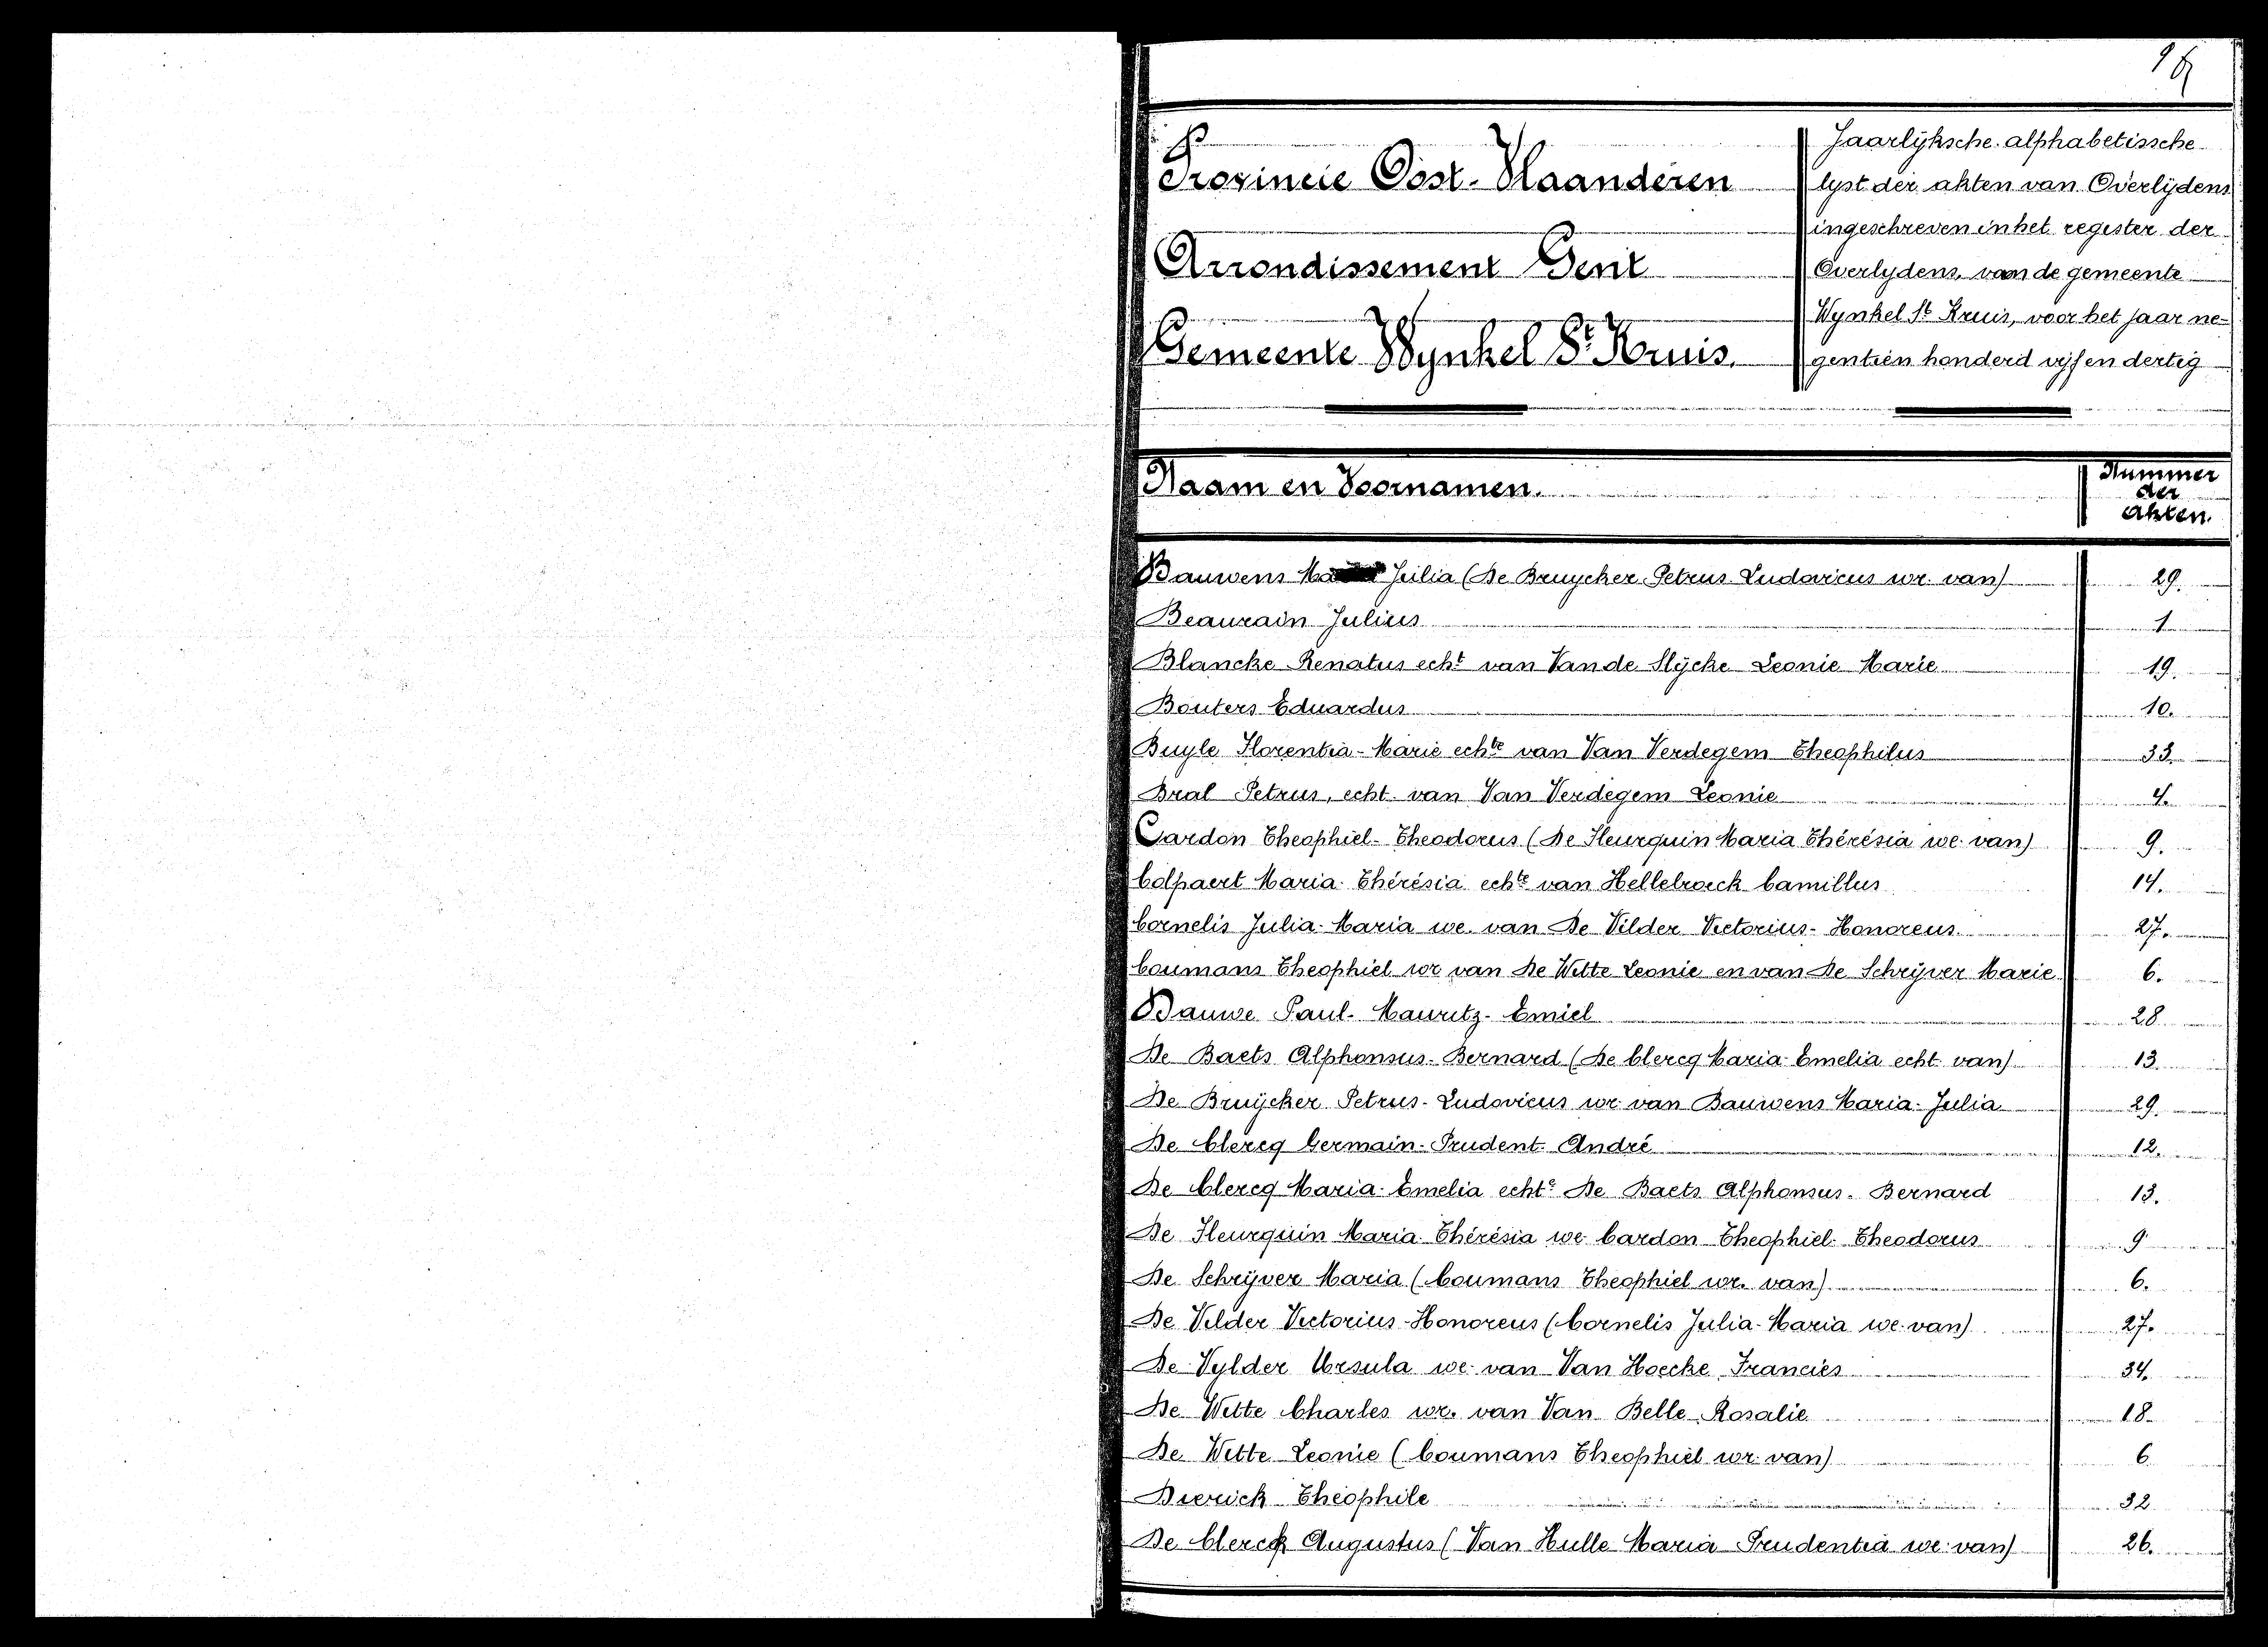 Provincie Oost-Vlaanderen
Arrondissement Gent
Gemeente Wynkel St Kruis.
Jaarlijksche alphabetissche
lyst der akten van Overlijdens
ingeschreven in het register der
Overlydens, van de gemeente
Wynkel St Kruis, voor het jaar ne-
gentien honderd vijf en dertig
Naam en Voornamen. Nummer der akten.
Bauwens Julia (De Bruycker Petrus Ludovicus wr. van) 29.
Beaurain Julius 1
Blancke Renatus echt van Van de Slycke Leonie Marie 19.
Bouters Eduardus 10.
Buyle Florentia-Marie echte van Van Verdegem Theophilus 33.
Bral Petrus, echt. van Van Verdegem Leonie 4.
Cardon Theophiel-Theodorus (De Fleurquin Maria Thérésia we. van) 9.
Colpaert Maria Thérésia echte van Hellebroeck Camillus 14.
Cornelis Julia-Maria we. van De Vilder Victorius-Honoreus 27.
Coumans Theophiel wr van De Wette Leonie en van De Schrijver Marie 6.
Dauwe Paul-Mauritz-Emiel 28
De Baets Alphonsus-Bernard (De Clercq Maria Emelia echt. van) 13.
De Bruijcker Petrus-Ludovicus wr. van Bauwens Maria-Julia 29.
De Clercq Germain-Prudent-André 12.
De Clercq Maria-Emelia echte De Baets Alphonsus-Bernard 13.
De Fleurquin Maria Thérésia we Cardon Theophiel-Theodorus 9
De Schrijver Maria (Coumans Theophiel wr. van) 6.
De Vilder Victorius-Honoreus (Cornelis Julia-Maria we. van) 27.
De Vylder Ursula we. van Van Hoecke Francies 34.
De Wette Charles wr. van Van Belle Rosalie 18.
De Wette Leonie (Coumans Theophiel wr. van) 6.
Dierick Théophile 32
De Clercq Augustus (Van Hulle Maria Prudentia we. van) 26.